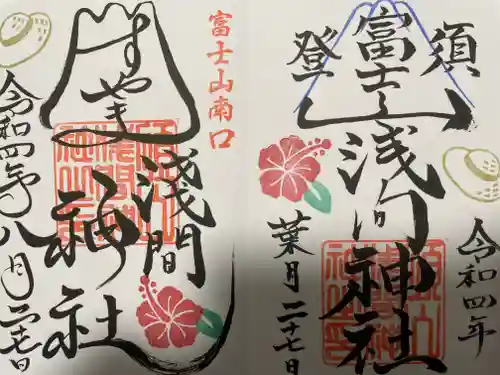 須
富士山
登
浅间
神社
令和四年
葉月二十七日
富士山南口
すやま
浅間
神社
令和四年八月二十七日